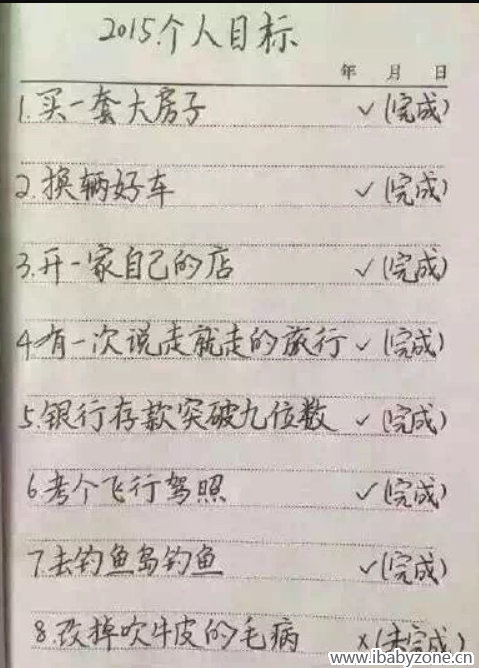 2015.个人目标
年 月 日
1.买一套大房子 ✓(完成)
2.换辆好车 ✓(完成)
3.开一家自己的店 ✓(完成)
4.有一次说走就走的旅行 ✓(完成)
5.银行存款突破九位数 ✓(完成)
6.考个飞行驾照 ✓(完成)
7.去钓鱼岛钓鱼 ✓(完成)
8.改掉吹牛皮的毛病 ×(未完成)
www.ibabyzone.cn